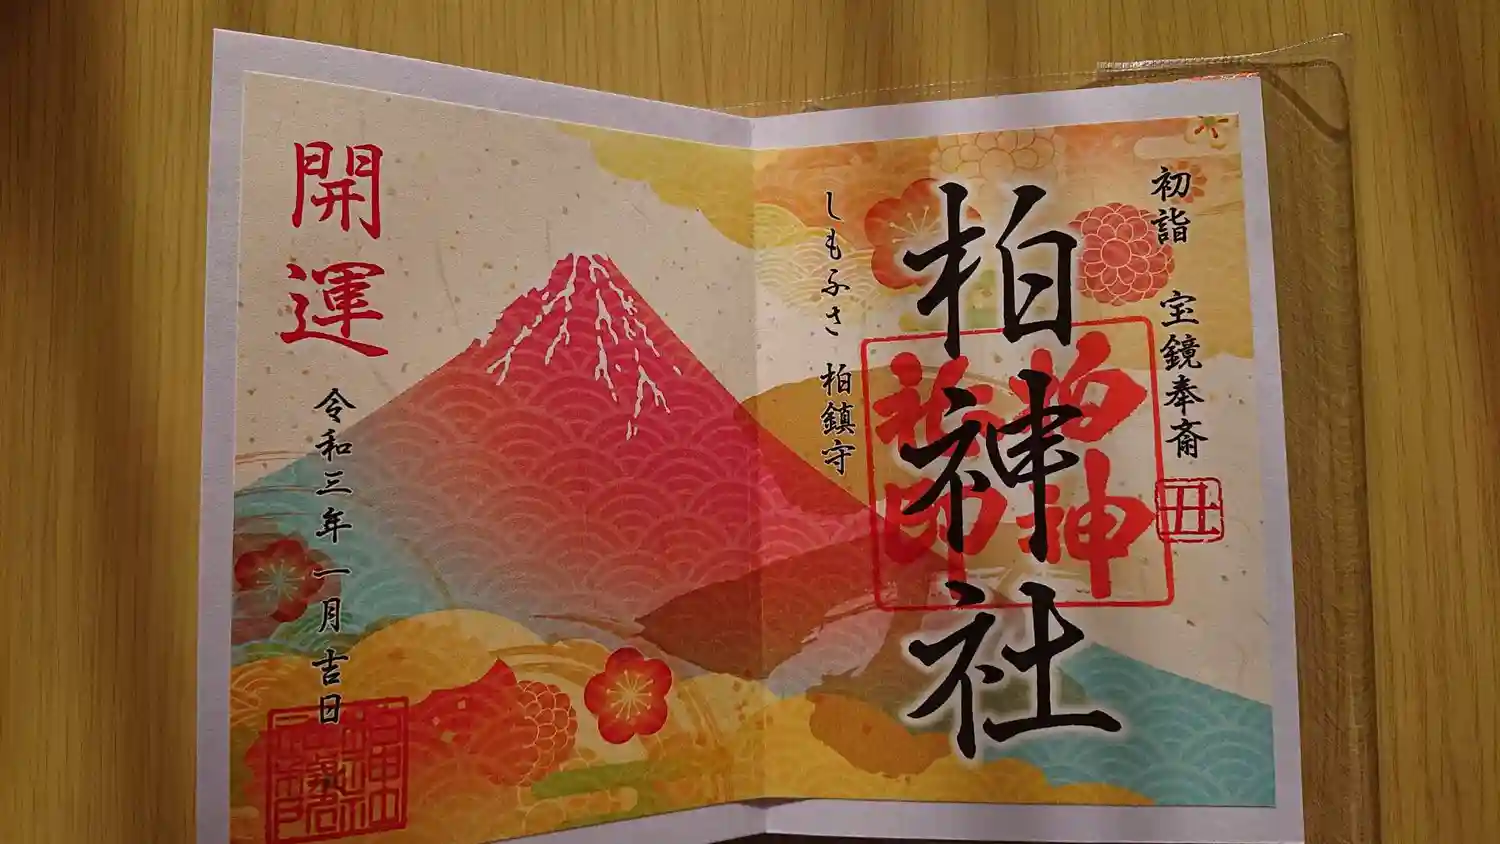 初詣 宝鏡奉斎
丑
柏神社
しもふさ 柏鎮守
開運
令和三年一月吉日